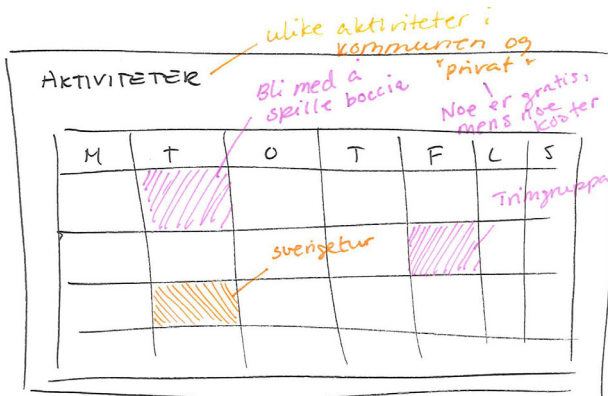 ulike aktiviteter i
kommunen og
"privat"
AKTIVITETER
Bli med å
spille boccia
Noe er gratis,
mens noe
koster
M T O T F L S
Trimgruppa
sverigetur